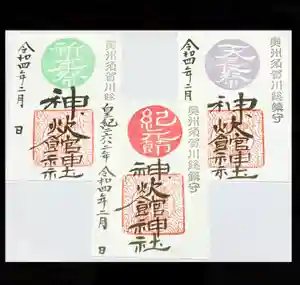 奥州須賀川総鎮守
天長祭
神炊館神社
令和四年二月
奥州須賀川総鎮守
紀元節
神炊館神社
皇紀二六八二年 令和四年二月 日
奥州須賀川総
祈年祭
神炊館神社
令和四年二月 日